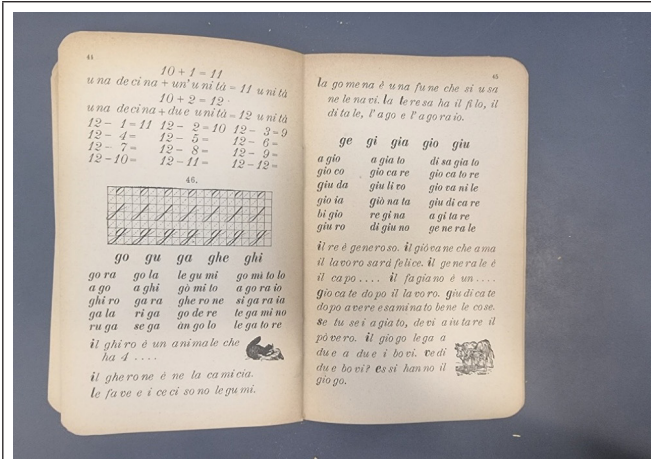 44
10 + 1 = 11
una decina + un' unità = 11 unità
10 + 2 = 12
una decina + due unità = 12 unità
12 - 1 = 11 12 - 2 = 10 12 - 3 = 9
12 - 4 = 12 - 5 = 12 - 6 =
12 - 7 = 12 - 8 = 12 - 9 =
12 - 10 = 12 - 11 = 12 - 12 =
46.
go gu ga ghe ghi
go ra go la le gu mi go mi to lo
a go a ghi gò mi to a go ra io
ghi ro ga ra ghe ro ne si ga ra ia
ga la ri ga go de re te ga mi no
ru ga se ga àn go lo le ga to re
il ghi ro è un a ni ma le che
ha 4 ....
il ghe ro ne è ne la ca mi cia.
le fa ve e i ce ci so no le gu mi.
45
la go me na è u na fu ne che si u sa
ne le na vi. la te re sa ha il fi lo, il
di ta le, l' a go e l' a go ra io.
ge gi gia gio giu
a gio a gia to di sa gia to
gio co gio ca re gio ca to re
giu da giu li vo gio va ni le
gio ia giò na ta giu di ca re
bi gio re gi na a gi ta re
giu ro di giu no ge ne ra le
il re è ge ne ro so. il gió va ne che a ma
il la vo ro sa rà fe li ce. il ge ne ra le è
il ca po .... il fa gia no è un ....
gio ca te do po il la vo ro. giu di ca te
do po a ve re e sa mi na to be ne le co se.
se tu se i a gia to, de vi a iu ta re il
pò ve ro. il gio go le ga a
du e a du e i bo vi. ve di
du e bo vi? es si han no il
gio go.